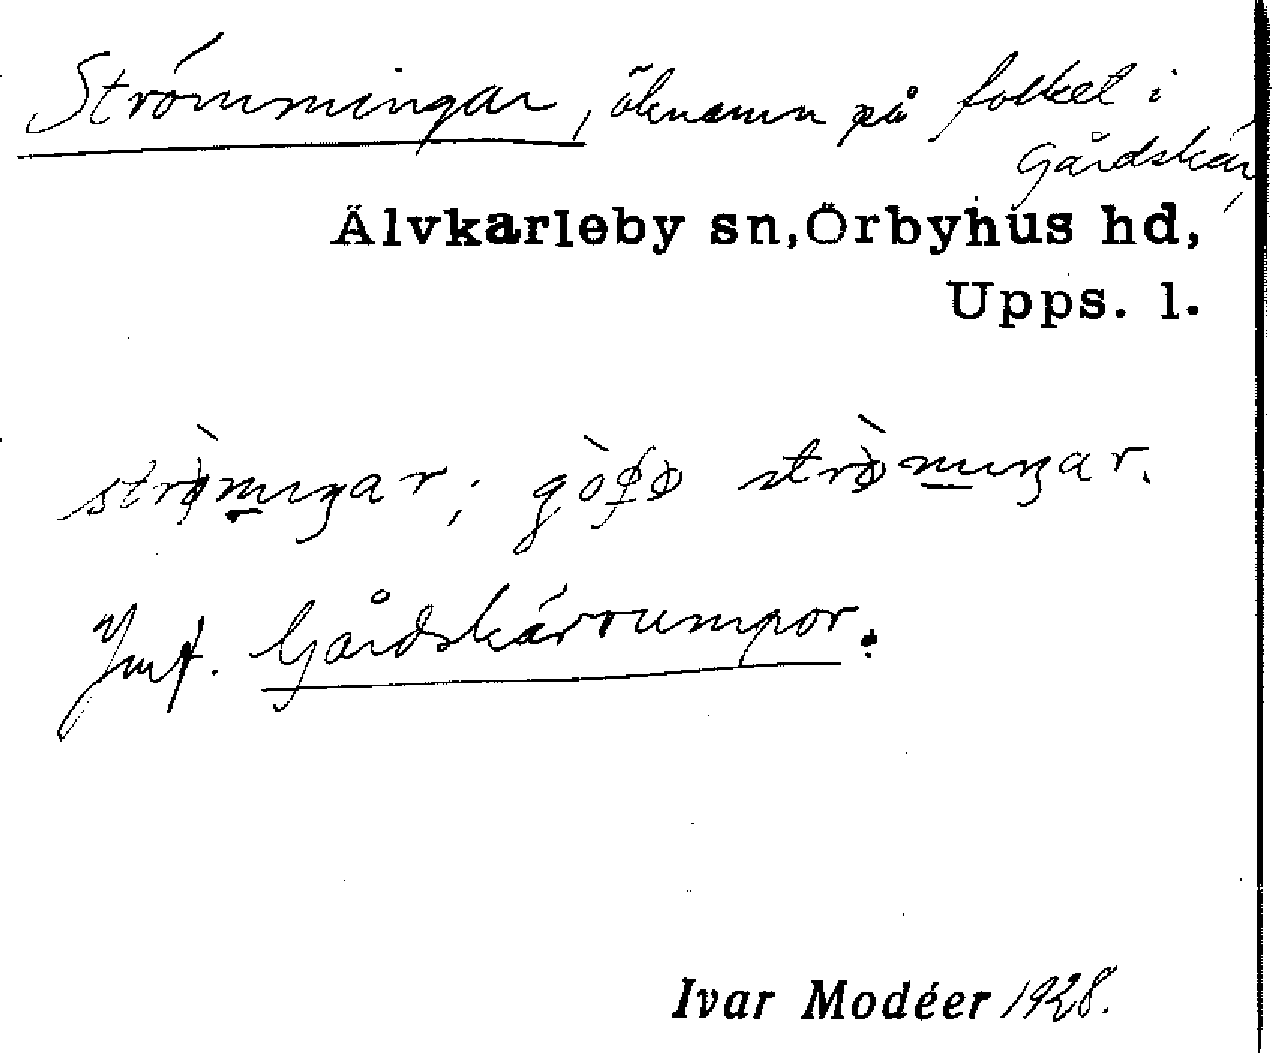 Strömmingar, öknamn på folket i
Gårdskär,
Älvkarleby sn, Örbyhus hd,
Upps. l.
Jmf. Gårdskärrumpor.
Ivar Modéer 1928.